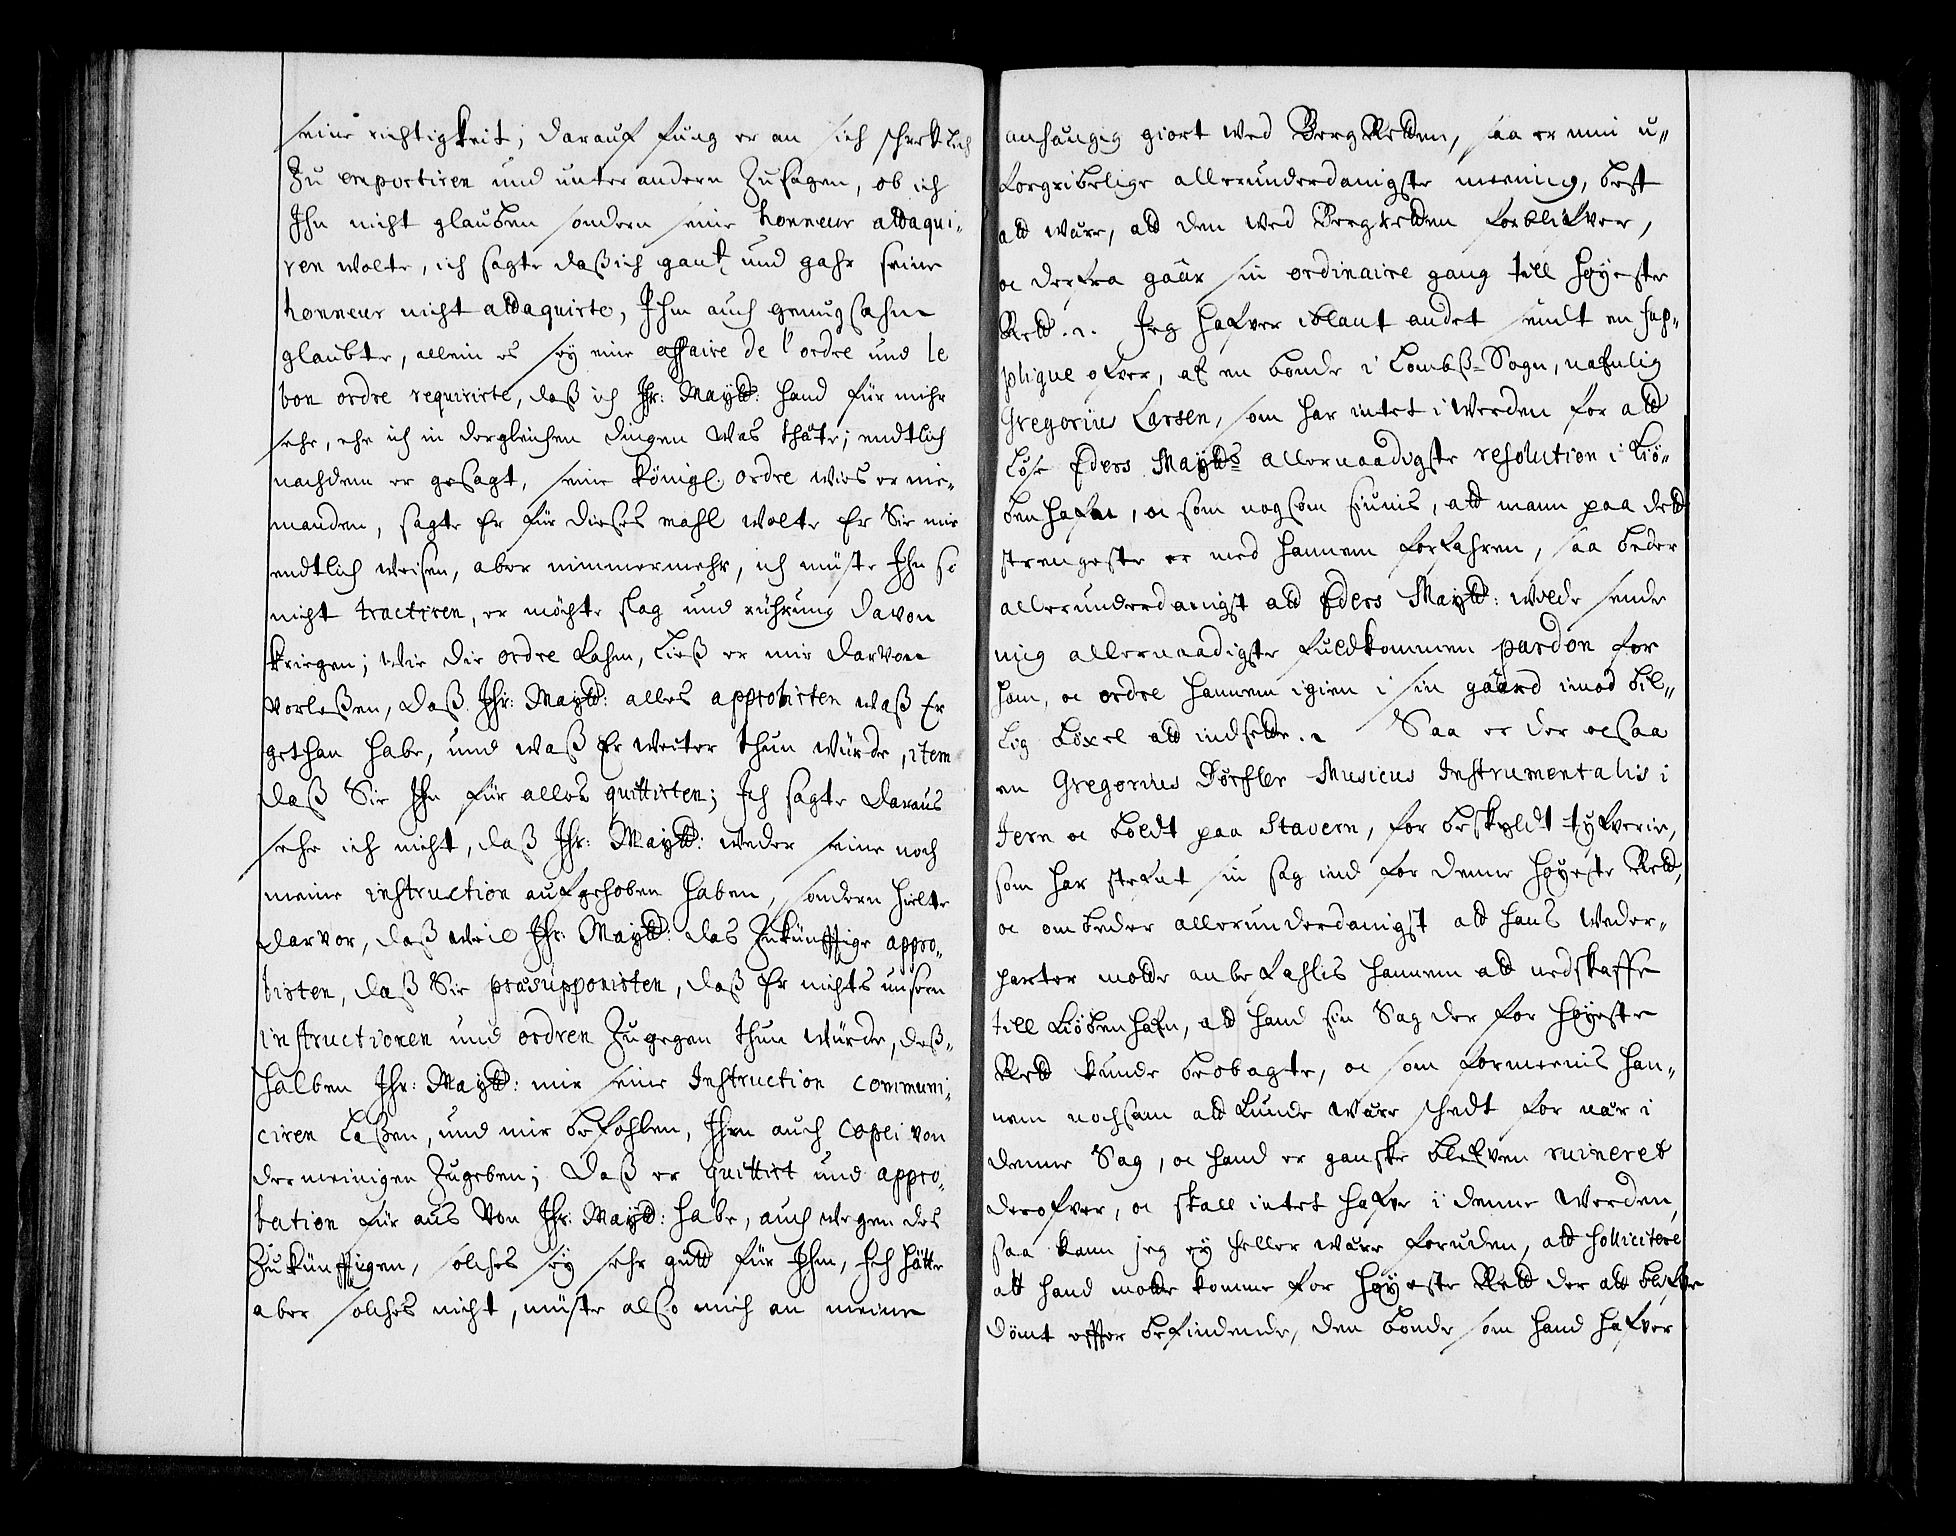 seine richtigkeit; darauf fung er an sich schreklich
Zu emportiren und unter andern Zu sagen, ob ich
Ihn nicht glauben sondern seine honneur attaqui„
ren wolte, ich sagte daß ich gantz und gahr seine
honneur nicht attaquirte, Ihm auch genugsahm
glaubte, allein es sey eine affaire de l'ordre und le
bon ordre requirirte, daß ich Ihr: Maytt: hand für mihr
sehe, ehe ich in dergleichen dingen was thäte; endtlich
nachdem er gesagt, seine Königl: ordre wies er nie„
manden, sagte Er für dieses mahl wolte Er Sie mir
endtlich weisen, aber nimmermehr, ich müste Ihn so
nicht tractiren, er möchte slag und rührung davon
kriegen; Wie die ordre kahm, ließ er mir darvon
vorleßen, daß Ihr: Maytt: alles approbirten waß Er
gethan habe, und waß Er weiter thun würde, item
daß Sie Ihn für alles quittirten; Ich sagte daraus
sehe ich nicht, daß Ihr: Maytt: weder seine noch
meine instruction aufgehoben haben, sondern hielte
darvor, daß weil Ihr: Maytt: das Zukünfftige appro„
birten, daß Sie præsupponirten, daß Er nichts unsern
instructionen und ordren Zugegen thun würde, deß„
halben Ihr: Maytt: mir seine Instruction communi„
ciren laßen, und mir befohlen, Ihm auch copei von
der meinigen Zugeben; Daß er quittirt und appro„
bation für aus Von Ihr: Maytt: habe, auch wegen des
Zukünfftigen, solches sey sehr gutt für Ihm, Ich hätte
aber solches nicht, müste also mich an meine
anhängig giort wed Berg Retten, saa er min u„
forgribelige allerunderdanigste meening, best
att ware, att den wed Bergretten forblifver,
oc derfra gaar sin ordinaire gang till høyeste
Rett. Jeg hafver iblant andet sendt en sup„
plique ofver, af en bonde i Lombß-Sogn, nafnlig
Gregorius Larsen, som har intet i Werden for att
løse Eders Maytts allernaadigste resolution i Kiø„
benhafn, oc som nogsom siunis, att mann paa dett
strengeste er med hannem forfahren, saa beder
allerunderdanigst att Eders Maytt: wilde sende
mig allernaadigste fuldkommen pardon for
ham, oc ordre hannem igien i sin gaard imod bil„
lig løxel att indsette. Saa er der ocsaa
en Gregorius Dørffler Musicus Instrumentalis i
Jern oc boldt paa Stavern, for beskyldt tyfverie,
som har stefnt sin sag ind for denne høyeste Rett,
oc ombeder allerunderdanigst att hans Weder„
parter motte anbefahlis hannem att nedskaffe
till Kiøbenhafn, att hand sin Sag der for høyeste
Rett kunde beobagte, oc som formeenis han„
nem nochsam att kunde ware skedt for nær i
denne Sag, oc hand er ganske blefven ruineret
derofver, oc skall intet hafve i denne Werden,
saa kann jeg ey heller ware foruden, att sollicitere
att hand motte komme for høyeste Rett der att blifve
dömt effter befindende, den bonde som hand hafver